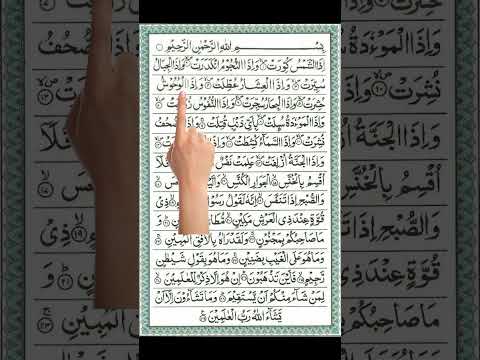 بِسْمِ اللهِ الرَّحْمٰنِ الرَّحِيْمِ
اِذَا الشَّمْسُ كُوِّرَتْ وَاِذَا النُّجُوْمُ انْكَدَرَتْ وَاِذَا الْجِبَالُ
سُيِّرَتْ وَاِذَا الْعِشَارُ عُطِّلَتْ وَاِذَا الْوُحُوْشُ
حُشِرَتْ وَاِذَا الْبِحَارُ سُجِّرَتْ وَاِذَا النُّفُوْسُ
وَاِذَا الْمَوْءٗدَةُ سُئِلَتْ بِاَيِّ ذَنْبٍ قُتِلَتْ وَاِذَا
نُشِرَتْ وَاِذَا السَّمَآءُ كُشِطَتْ وَاِذَا
وَاِذَا الْجَنَّةُ اُزْلِفَتْ عَلِمَتْ نَفْسٌ
اُقْسِمُ بِالْخُنَّسِ الْجَوَارِ الْكُنَّسِ
وَالصُّبْحِ اِذَا تَنَفَّسَ اِنَّهٗ لَقَوْلُ رَسُوْلٍ
قُوَّةٍ عِنْدَ ذِى الْعَرْشِ مَكِيْنٍ
مَا صَاحِبُكُمْ بِمَجْنُوْنٍ وَلَقَدْ رَاٰهُ بِالْاُفُقِ الْمُبِيْنِ
وَمَا هُوَ عَلَى الْغَيْبِ بِضَنِيْنٍ وَمَا هُوَ بِقَوْلِ شَيْطٰنٍ
رَّجِيْمٍ فَاَيْنَ تَذْهَبُوْنَ اِنْ هُوَ اِلَّا ذِكْرٌ لِّلْعٰلَمِيْنَ
لِمَنْ شَآءَ مِنْكُمْ اَنْ يَّسْتَقِيْمَ وَمَا تَشَآءُوْنَ اِلَّا اَنْ
يَّشَآءَ اللهُ رَبُّ الْعٰلَمِيْنَ